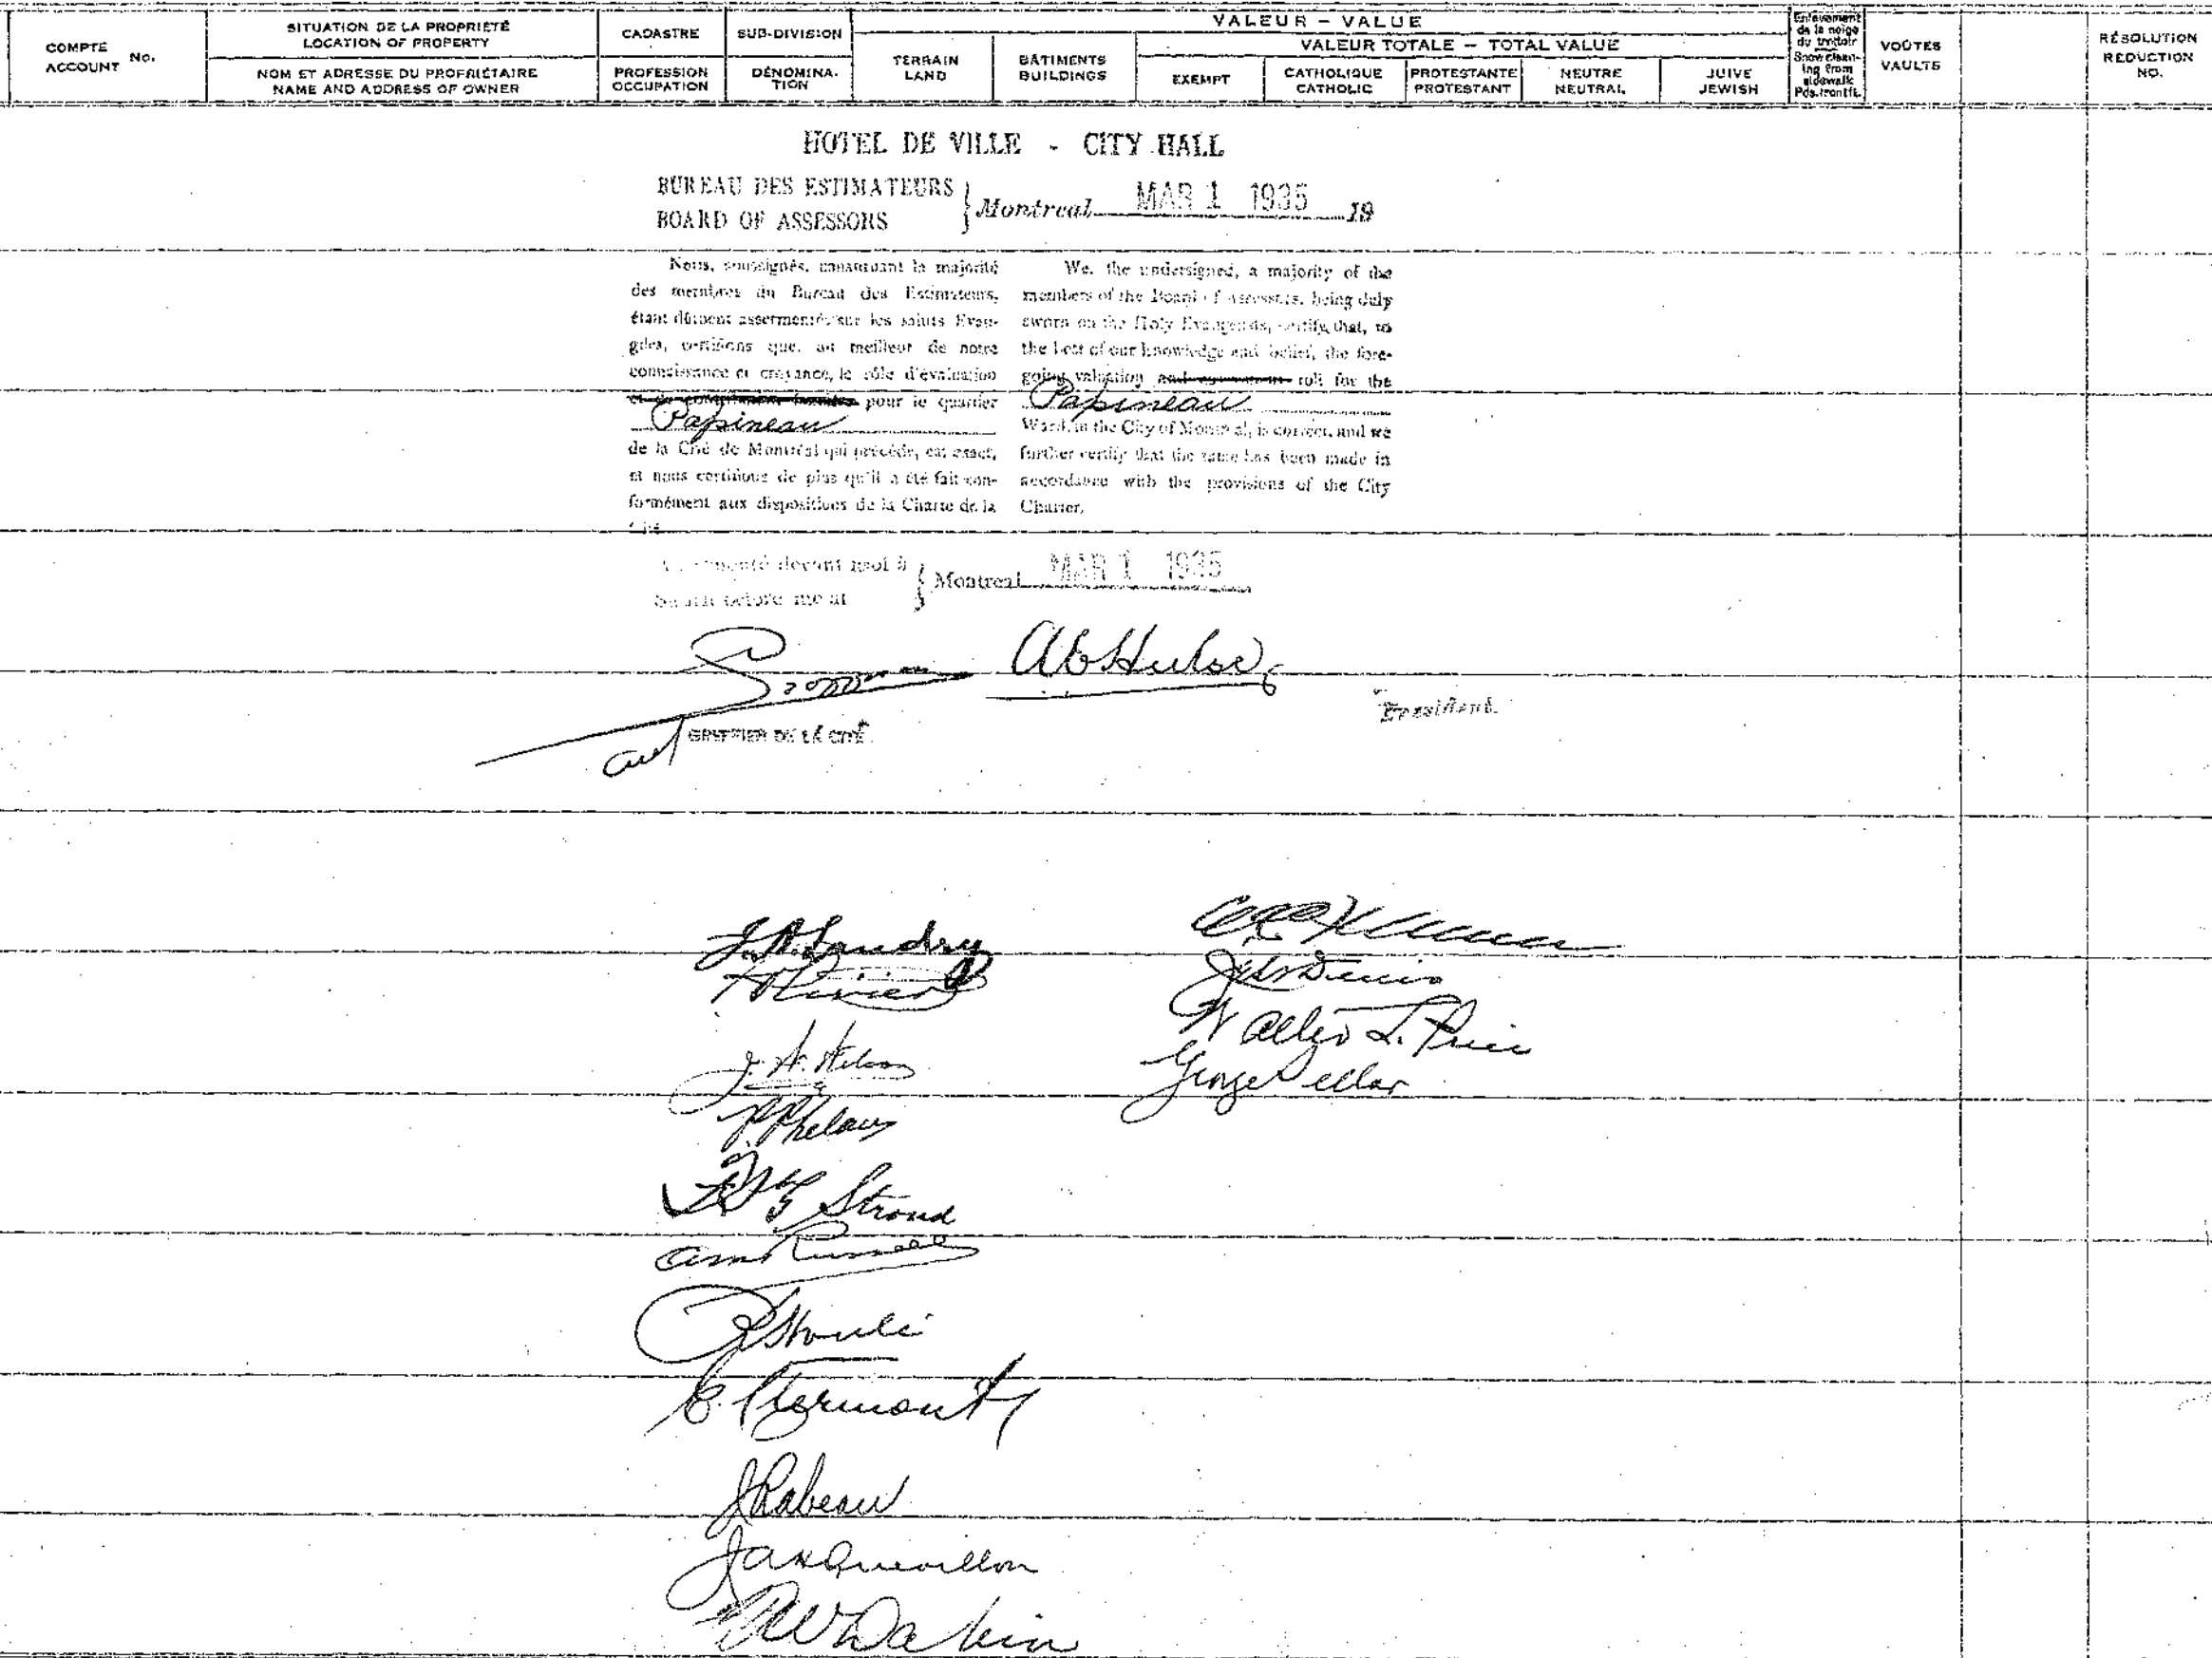 COMPTE ACCOUNT No.
SITUATION DE LA PROPRIÉTÉ
LOCATION OF PROPERTY
NOM ET ADRESSE DU PROPRIÉTAIRE
NAME AND ADDRESS OF OWNER
CADASTRE
PROFESSION
OCCUPATION
SUB-DIVISION
DÉNOMINA-
TION
VALEUR – VALUE
TERRAIN
LAND
BÂTIMENTS
BUILDINGS
VALEUR TOTALE – TOTAL VALUE
EXEMPT
CATHOLIQUE
CATHOLIC
PROTESTANTE
PROTESTANT
NEUTRE
NEUTRAL
JUIVE
JEWISH
Enlèvement
de la neige
du trottoir
Snow clean-
ing from
sidewalk
Pds. front ft.
VOÛTES
VAULTS
RÉSOLUTION
REDUCTION
NO.
HOTEL DE VILLE - CITY HALL
BUREAU DES ESTIMATEURS
BOARD OF ASSESSORS
Montreal MAR 1 1935 19
Nous, soussignés, constituant la majorité
des membres du Bureau des Estimateurs,
étant dûment assermentés sur les saints Évan-
giles, certifions que, au meilleur de notre
connaissance et croyance, le rôle d'évaluation
pour le quartier
Papineau
de la Cité de Montréal qui précède, est exact,
et nous certifions de plus qu'il a été fait con-
formément aux dispositions de la Charte de la
Cité.
We, the undersigned, a majority of the
members of the Board of Assessors, being duly
sworn on the Holy Evangelists, certify that, to
the best of our knowledge and belief, the fore-
going valuation and roll for the
Papineau
Ward, in the City of Montreal, is correct, and we
further certify that the same has been made in
accordance with the provisions of the City
Charter.
Assermenté devant moi à
Sworn before me at
Montreal MAR 1 1935
President.
GREFFIER DE LA CITÉ
J.A. Landry
Phelan
Stroud
Russell
Houle
E. Clermont
J Rabeau
Quevillon
Dakin
Denis
Walter L. Price
George Pellar